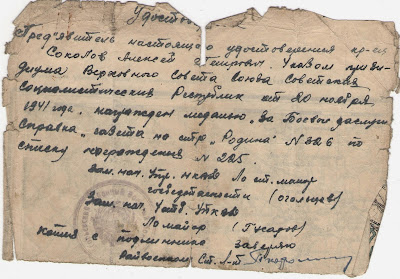 Удостов
Предъявитель настоящего удостоверения кр-ец
Соколов Алексей Указом прези-
диума Верховного Совета Союза Советских
Социалистических Республик от 20 ноября
1941 года, награжден медалью „За Боевые заслуги
Справка „ газета на стр „Родина" № 326 по
списку награждения № 225.
Зам. нач. Упр. НКВД ст. майор
госбезопасности (Оголцов)
Зам. нач. УНКВД
майор (Гусаров)
Копия с подлинного заверяю
Райвоенком Ст. Л-т